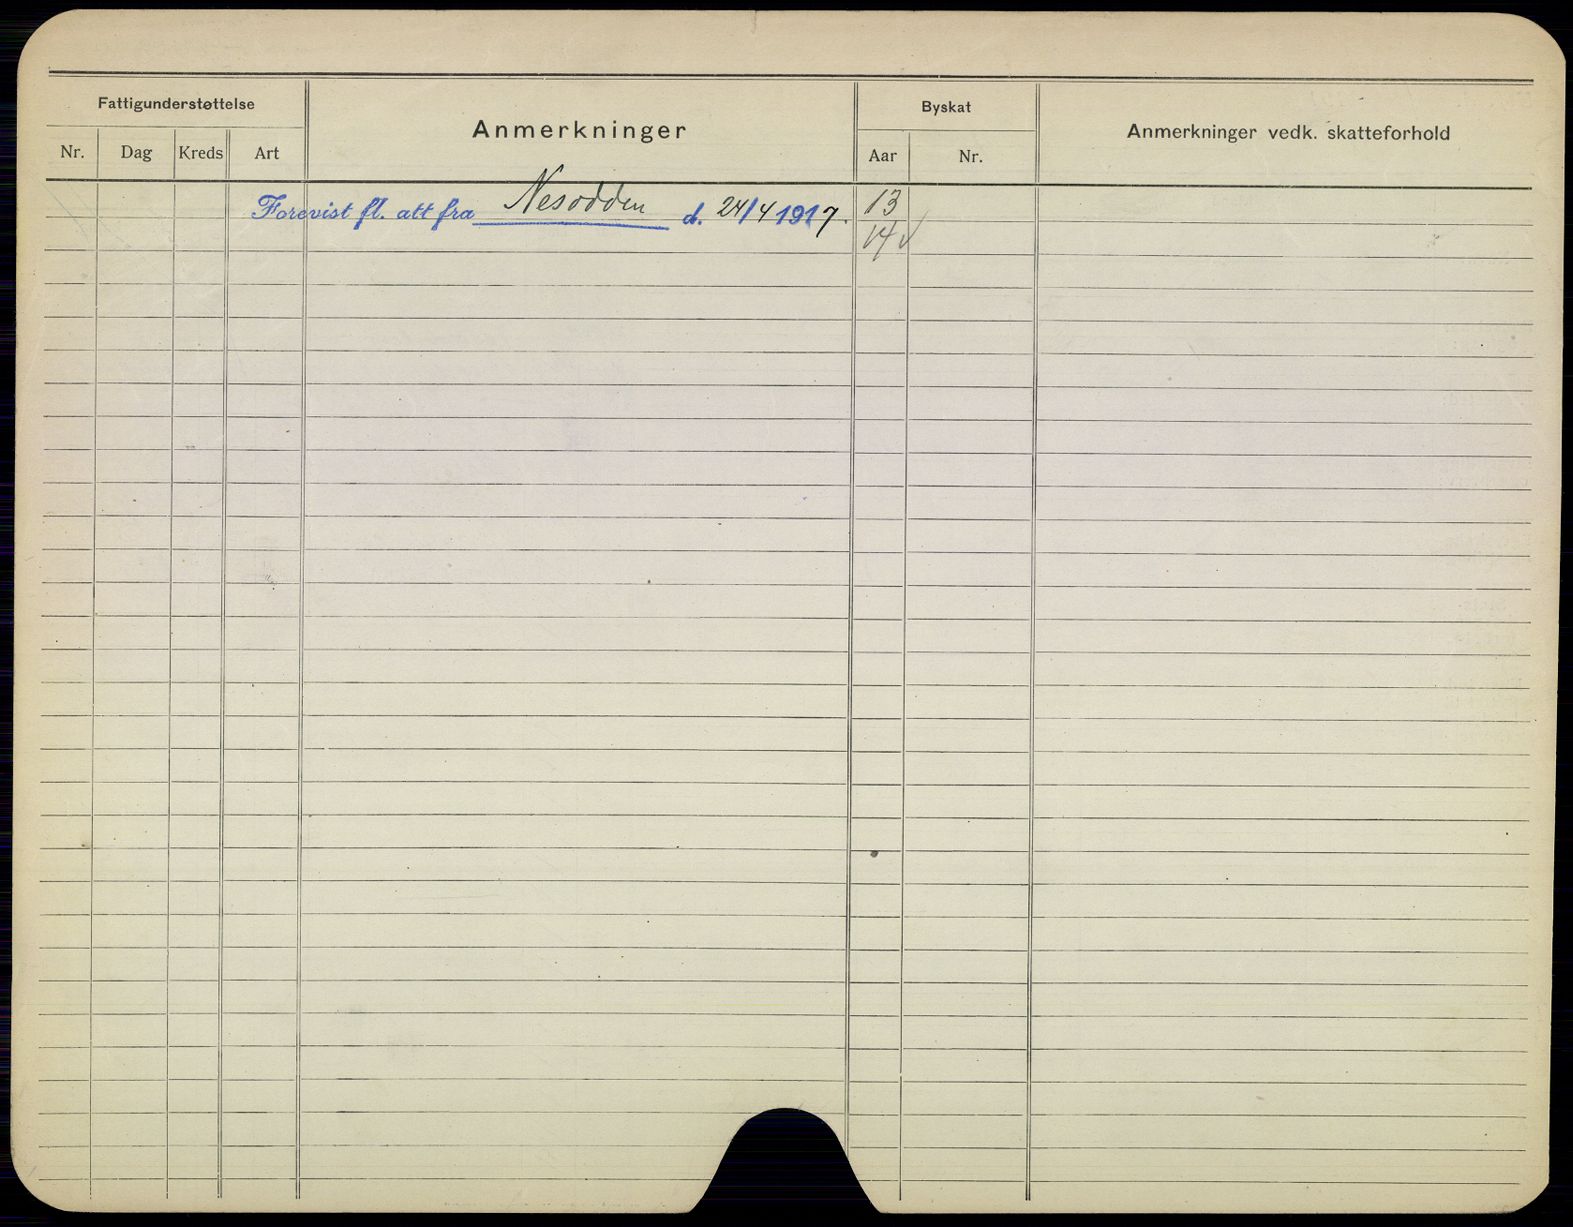 Fattigunderstøttelse
Anmerkninger
Byskat
Anmerkninger vedk. skatteforhold
Nr. Dag Kreds Art
Aar Nr.
Forevist fl. att fra Nesodden d. 24/4 1917.
13
14 √